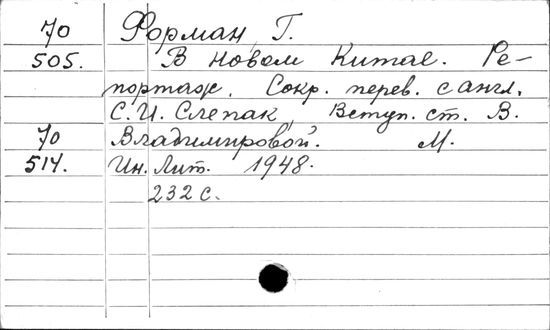 70 Форман, Г.
505. В новом Китае. Ре-
портаж. Сокр. перев. с англ.
С.И. Слепак. Вступ. ст. В.
70 Владимировой. М.
514. Ин. Лит. 1948.
232 с.